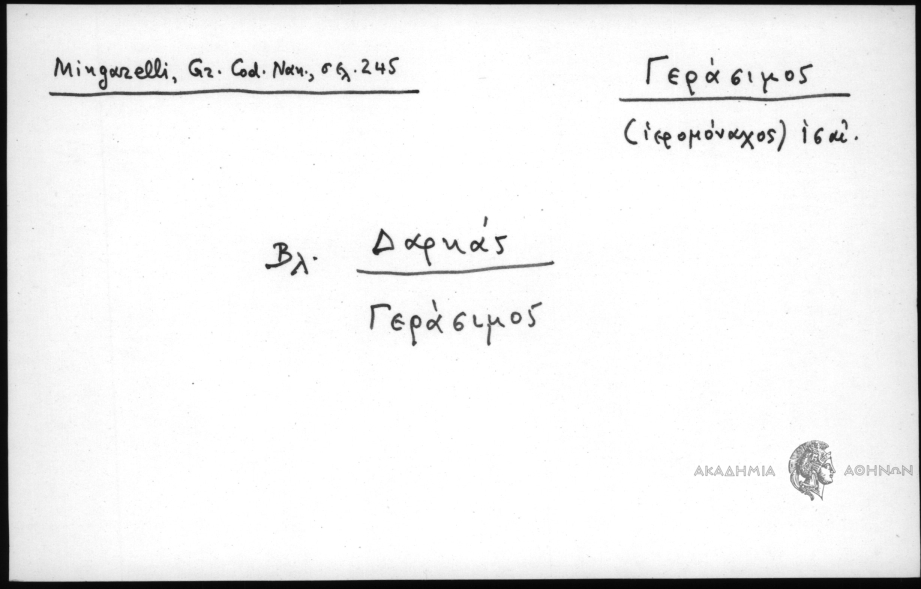 Mingarelli, Gr. Cod. Nan., σελ. 245
Γεράσιμος
(ἱερομόναχος)
Βλ. Δαρκάς
Γεράσιμος
ΑΚΑΔΗΜΙΑ ΑΘΗΝΩΝ